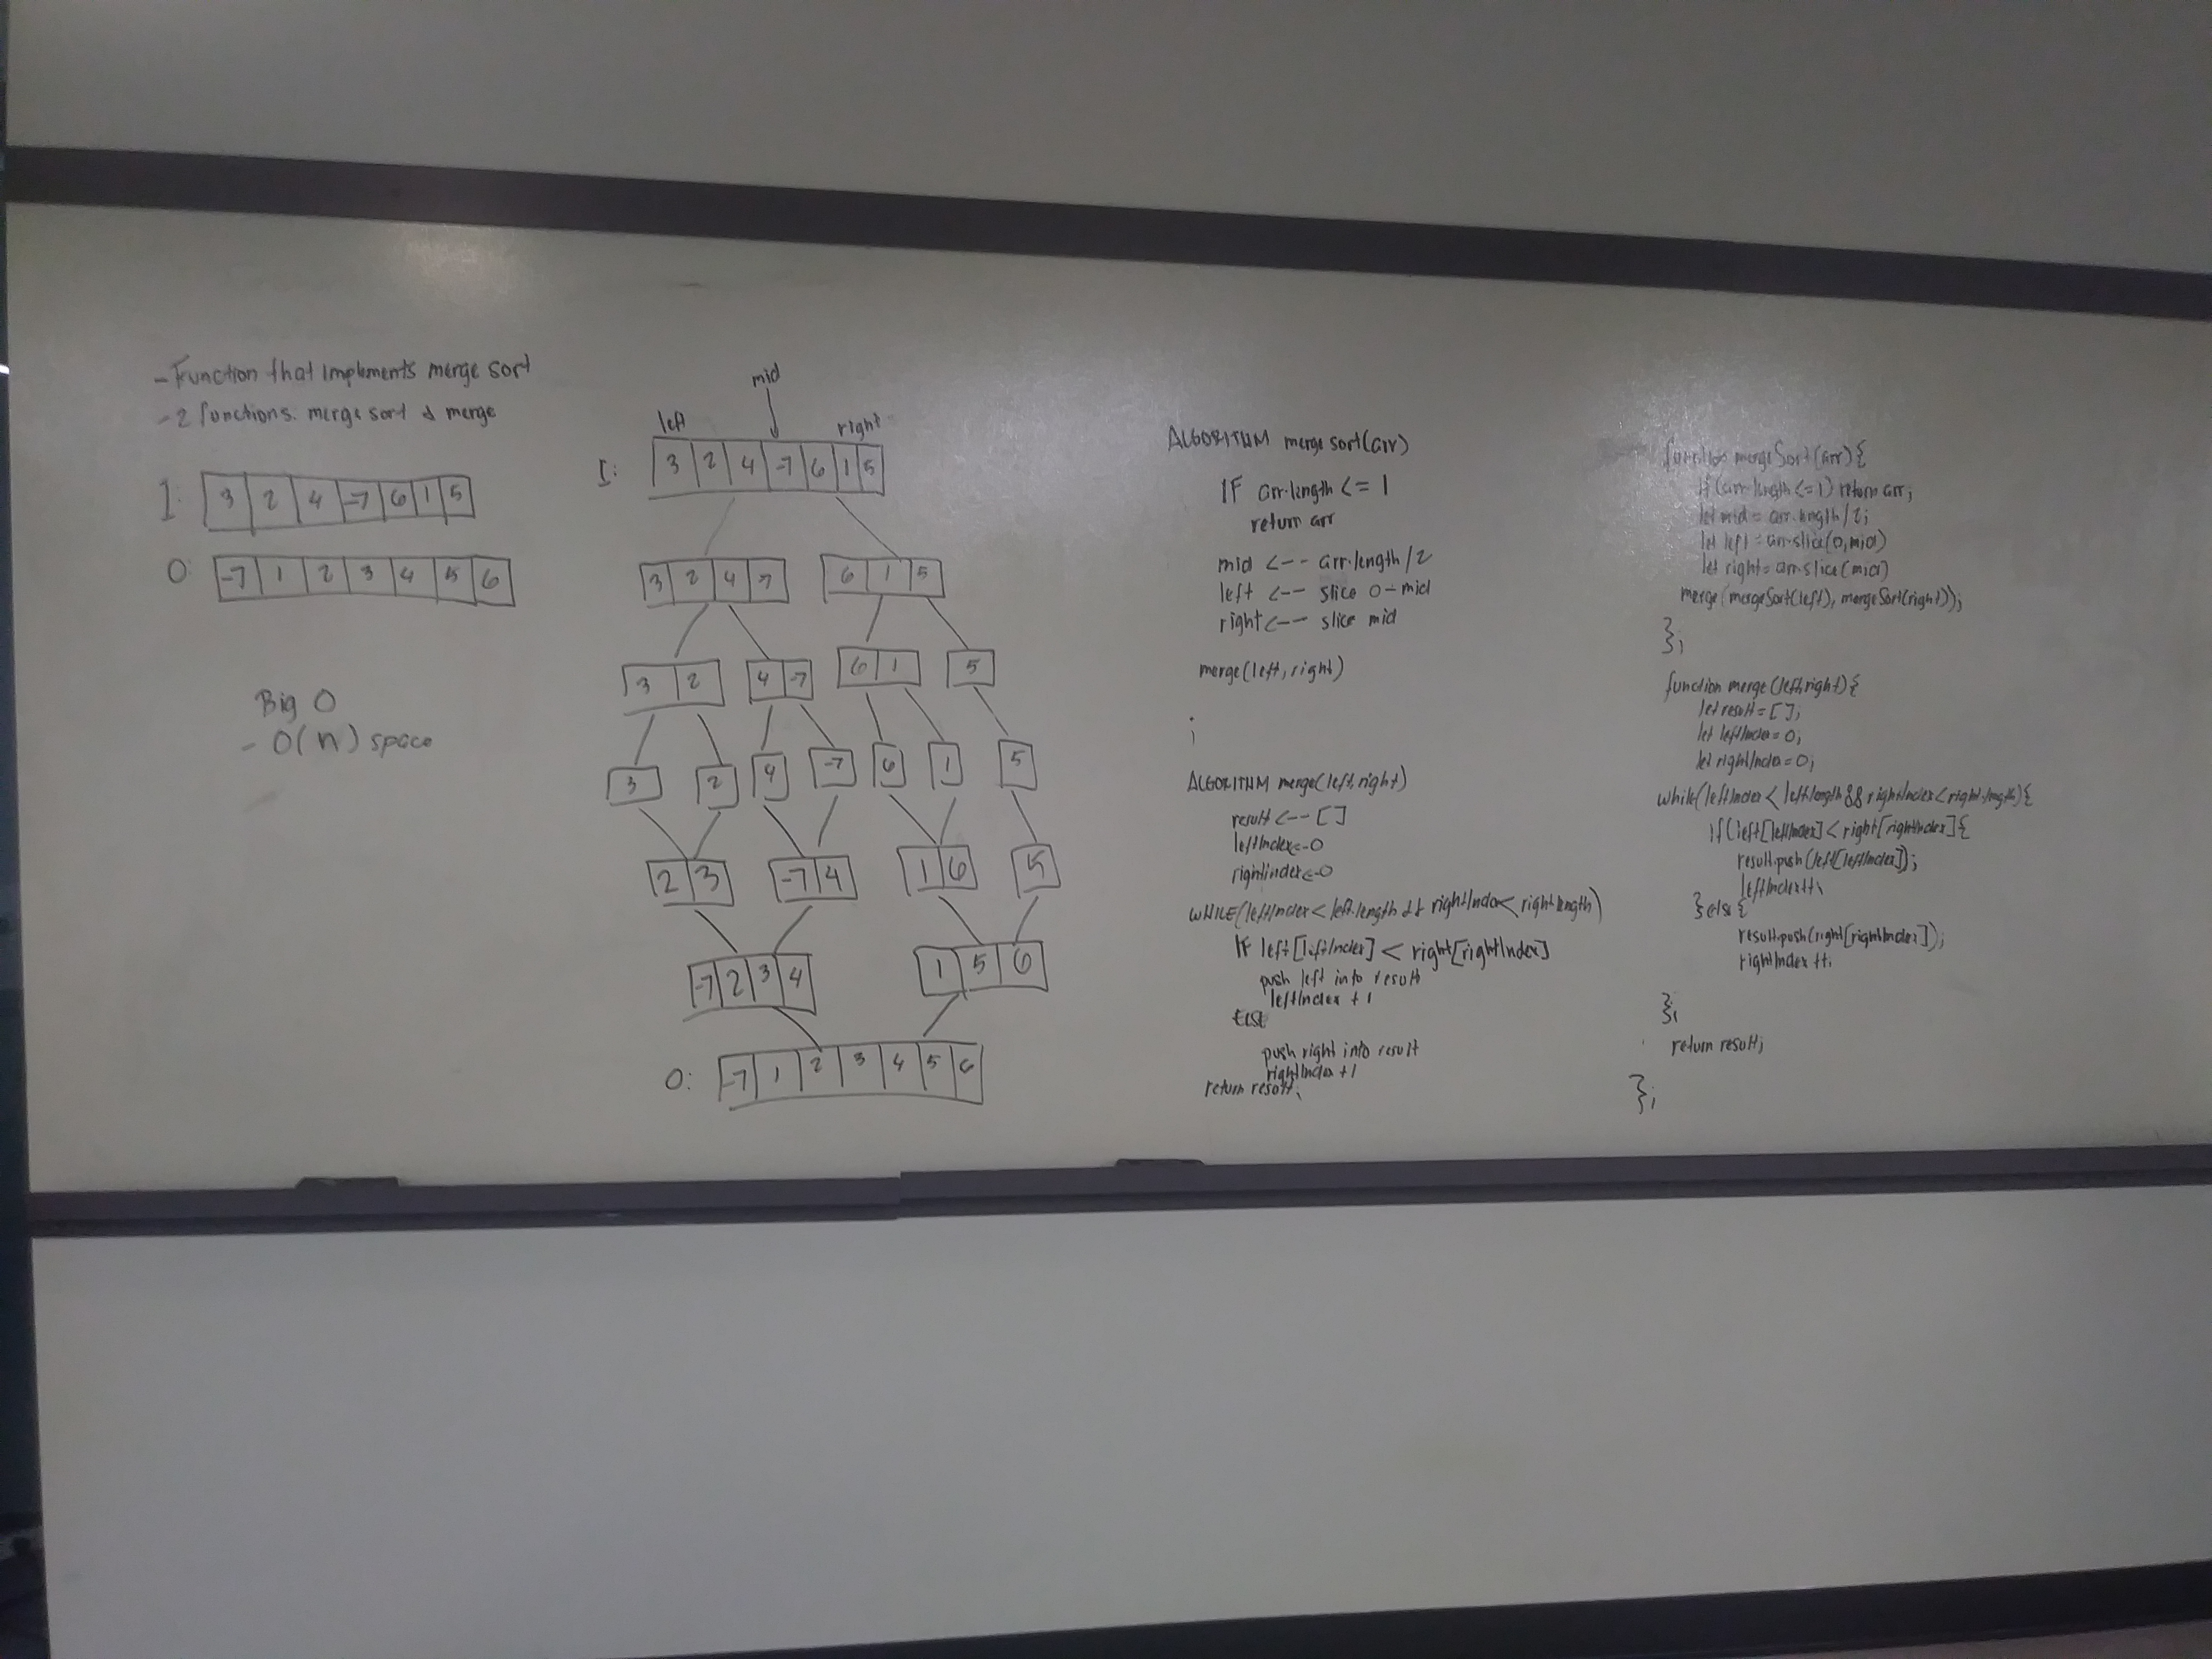 - Function that implements merge sort
- 2 functions: merge sort & merge
I: 3 2 4 -7 6 1 5
O: -7 1 2 3 4 5 6
Big O
- O(n) space
mid
left right
I: 3 2 4 -7 6 1 5
3 2 4 -7 6 1 5
3 2 4 -7 6 1 5
3 2 4 -7 6 1 5
2 3 -7 4 1 6 5
-7 2 3 4 1 5 6
O: -7 1 2 3 4 5 6
ALGORITHM merge sort(arr)
IF arr.length <= 1
return arr
mid <-- arr.length/2
left <-- slice 0-mid
right <-- slice mid
merge(left, right)
;
ALGORITHM merge(left, right)
result <-- []
leftIndex <- 0
rightindex <- 0
WHILE(leftIndex < left.length && rightIndex < right.length)
IF left[leftIndex] < right[rightIndex]
push left into result
leftIndex + 1
ELSE
push right into result
rightIndex + 1
return result;
function mergeSort(arr){
if(arr.length <= 1) return arr;
let mid = arr.length/2;
let left = arr.slice(0, mid)
let right = arr.slice(mid)
merge(mergeSort(left), mergeSort(right));
};
function merge(left, right){
let result = [];
let leftIndex = 0;
let rightIndex = 0;
while(leftIndex < left.length && rightIndex < right.length){
if(left[leftIndex] < right[rightIndex]{
result.push(left[leftIndex]);
leftIndex++;
} else {
result.push(right[rightIndex]);
rightIndex++;
};
return result;
};